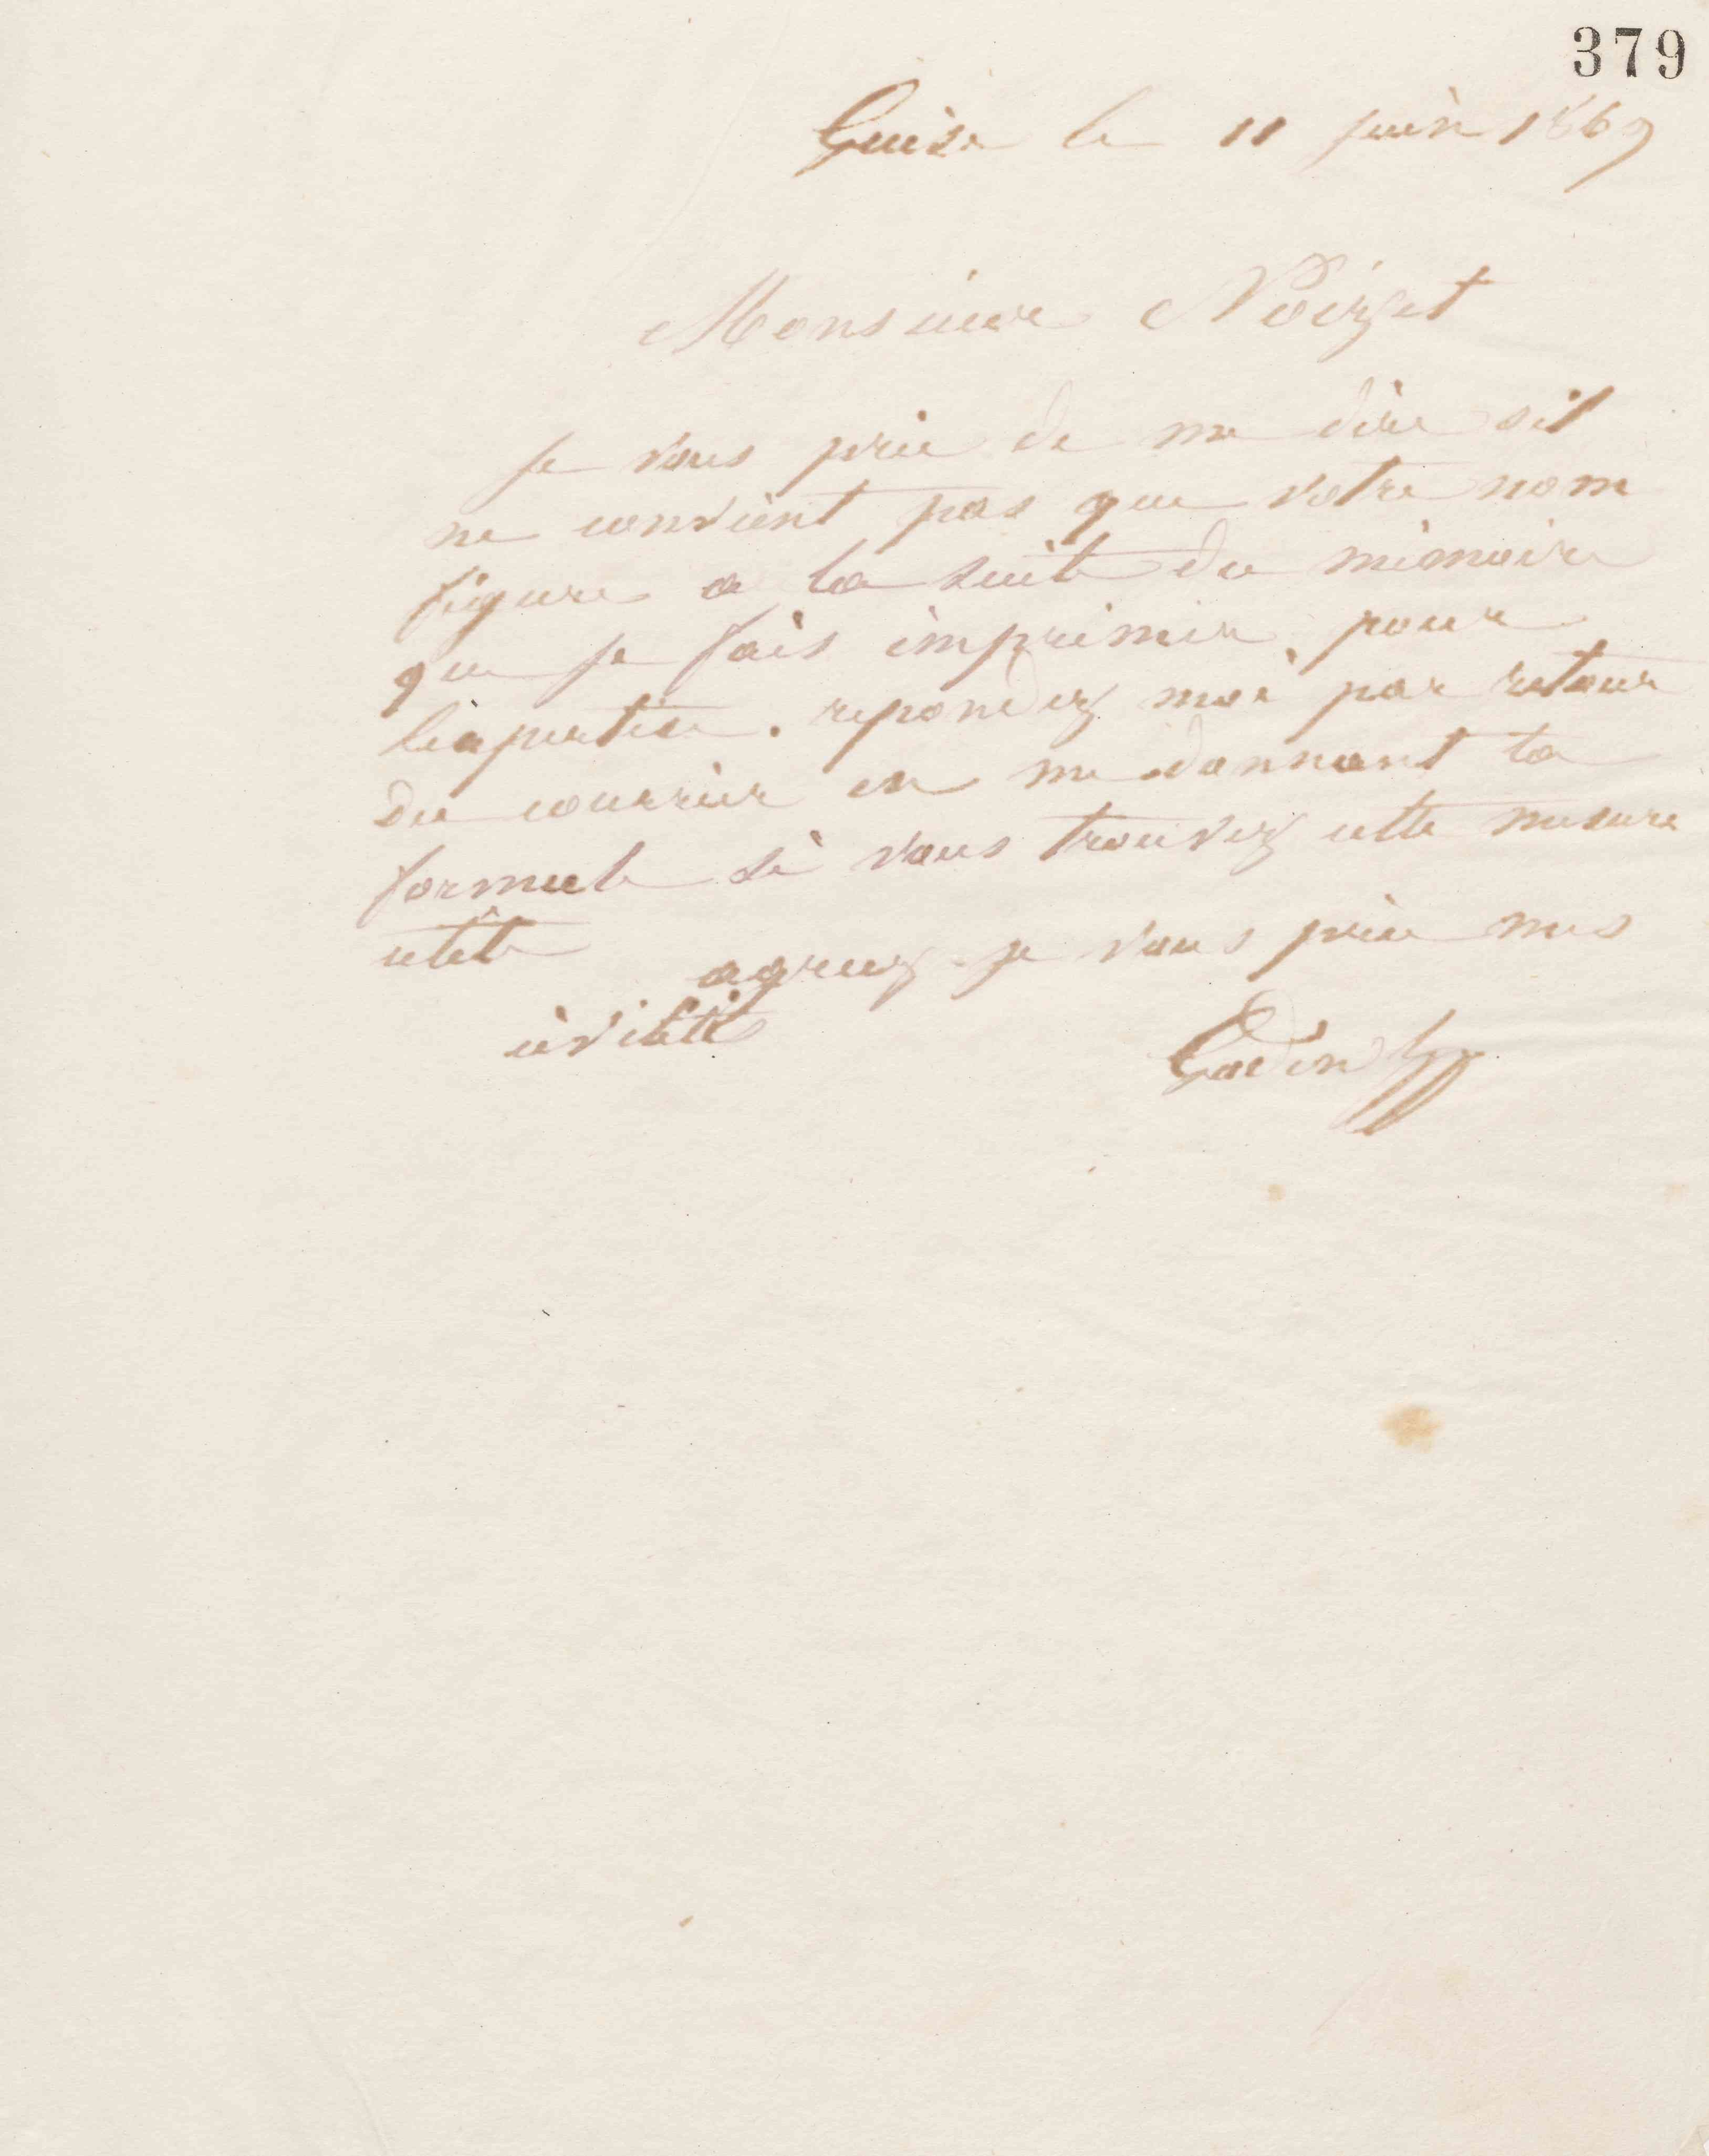 379
Guise le 11 juin 1869
Monsieur Noizet
je vous prie de me dire sil
ne convient pas que votre nom
figure a la suite du mémoire
que je fais imprimer pour
lexpertise. repondez moi par retour
du courrier en me donnant la
formule si vous trouvez cette mesure
utile
agreez je vous prie mes
civilités
Godin